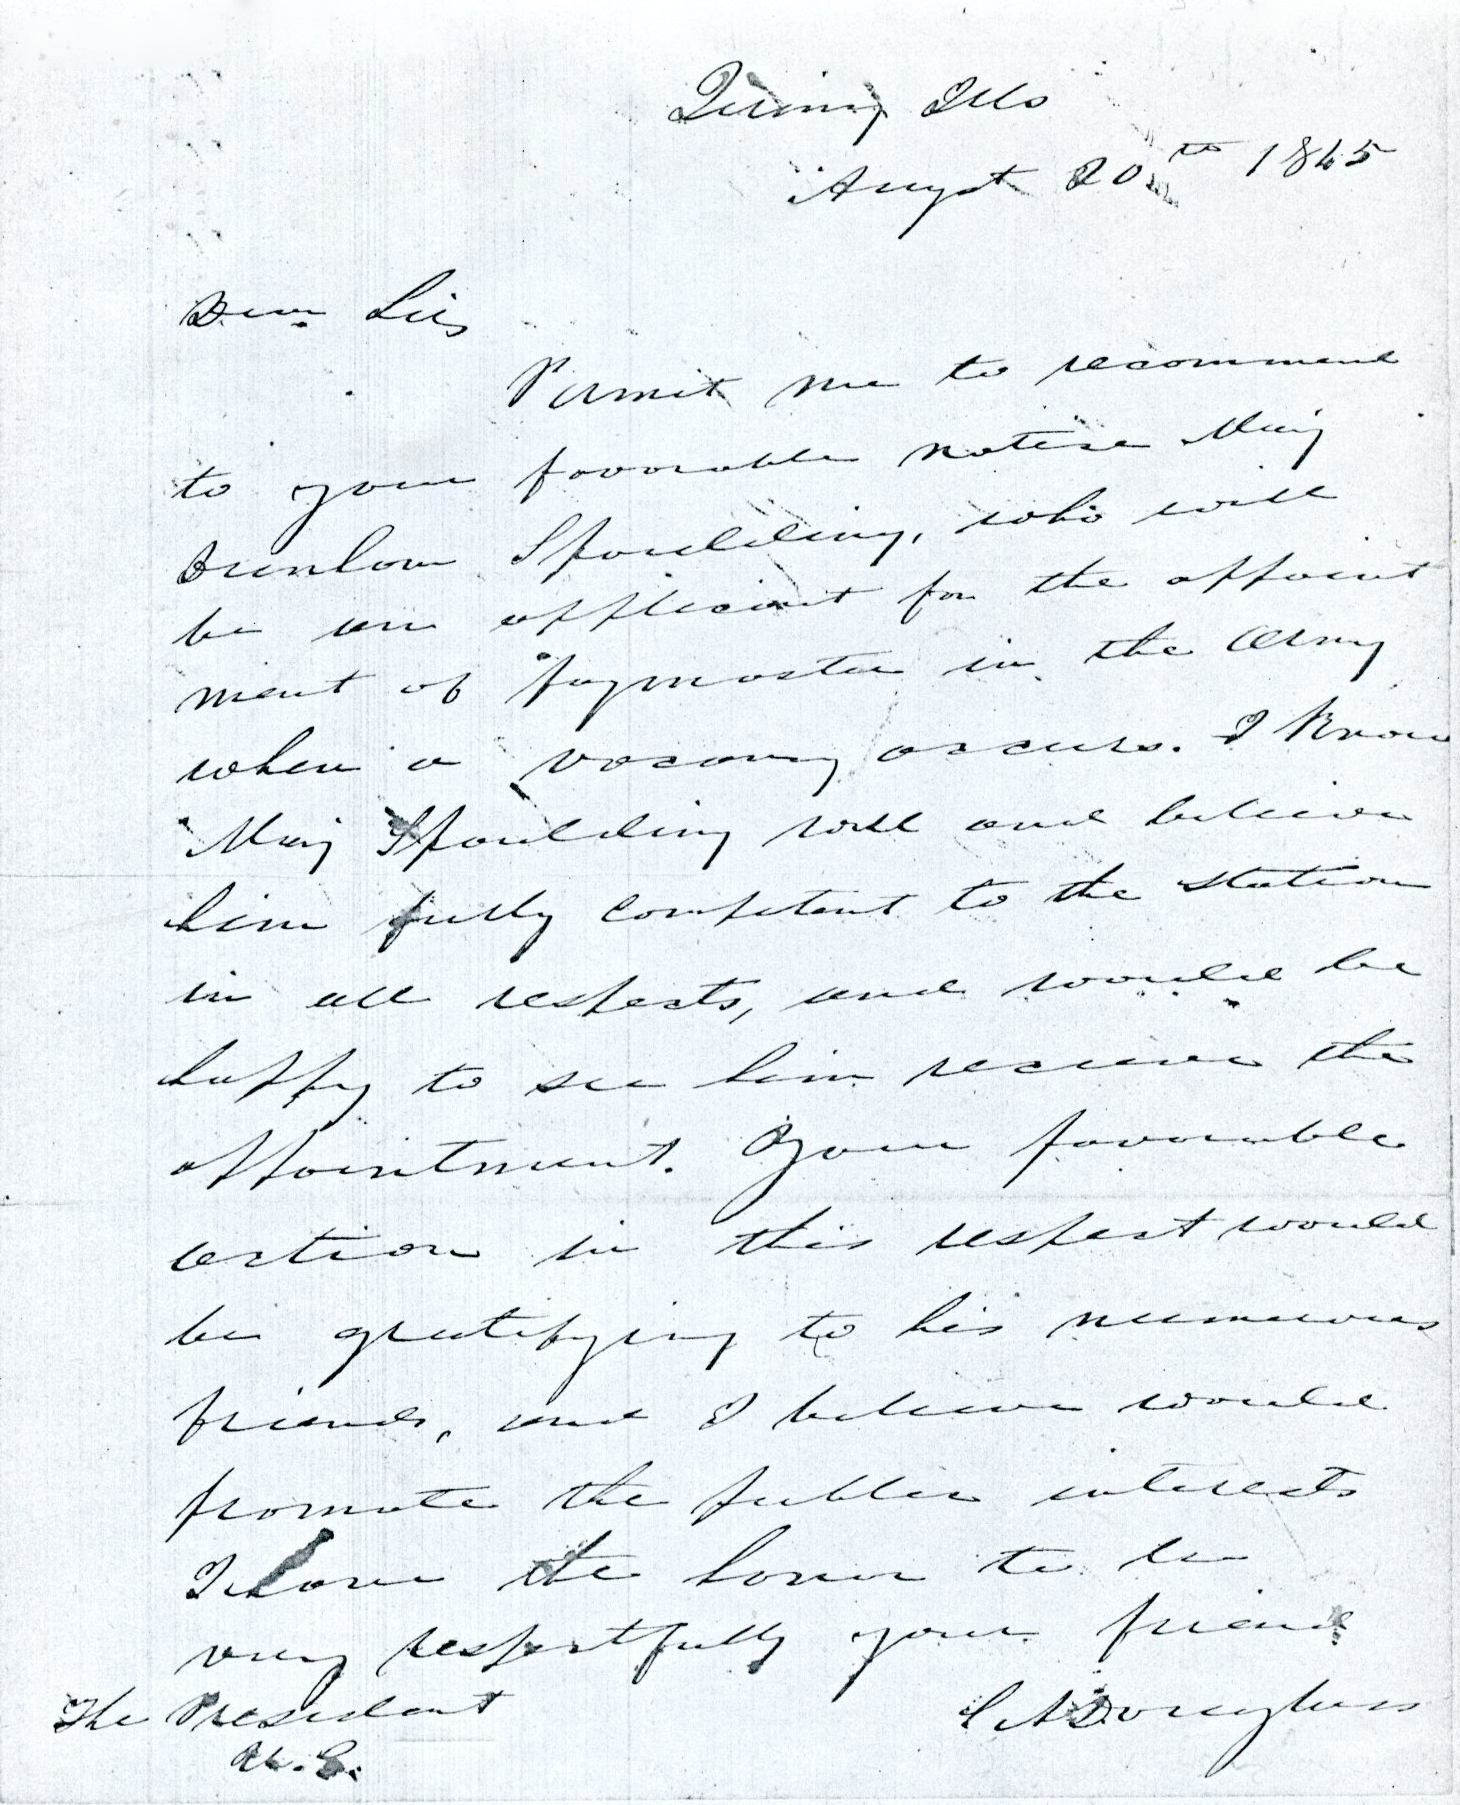 Quincy Ills
Augst 20th 1845
Dear Sir,
Permit me to recommend
to your favorable notice Maj
Spaulding, who will
be an applicant for the appoint
ment of Paymaster in the Army
when a vacancy occurs. I know
Maj Spaulding well and believe
him fully competent to the station
in all respects, and would be
happy to see him receive the
appointment. Your favorable
action in this respect would
be gratifying to his numerous
friends, and I believe would
promote the public interests
I have the honor to be
very respectfully your friend
S A Douglass
The President
U.S.